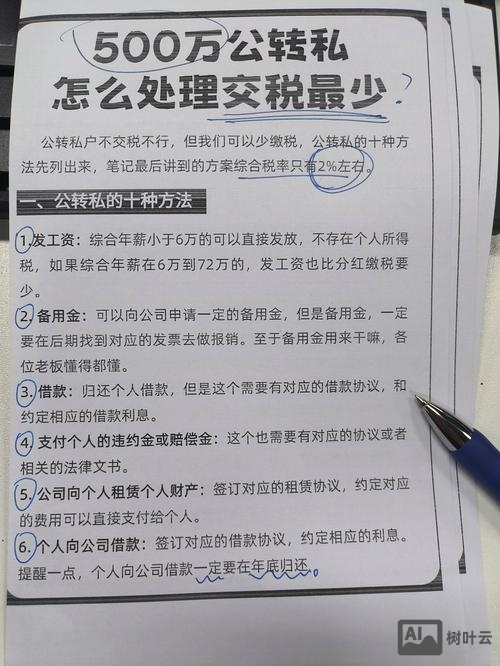 500万公转私
怎么处理交税最少?
公转私户不交税不行，但我们可以少缴税，公转私的十种方
法先列出来，笔记最后讲到的方案综合税率只有2%左右。
一、公转私的十种方法
1.发工资：综合年薪小于6万的可以直接发放，不存在个人所得
税，如果综合年薪在6万到72万的，发工资也比分红缴税要
少。
2.备用金：可以向公司申请一定的备用金，但是备用金，一定
要在后期找到对应的发票去做报销。至于备用金用来干嘛，各
位老板懂得都懂。
3.借款：归还个人借款，但是这个需要有对应的借款协议，和
约定相应的借款利息。
4.支付个人的违约金或赔偿金：这个也需要有对应的协议或者
相关的法律文书。
5.公司向个人租赁个人财产：签订对应的租赁协议，约定对应
的费用可以直接支付给个人。
6.个人向公司借款：签订对应的借款协议，约定相应的利息。
提醒一点，个人向公司借款一定要在年底归还。
AI 树叶云